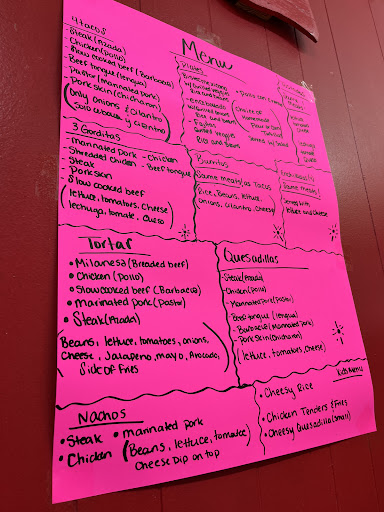 Menu
4 tacos
- Steak (Azada)
- Chicken (Pollo)
- Slow cooked beef (Barbacoa)
- Beef tongue (lengua)
- Pastor (marinated pork)
- Pork skin (chicharon)
(only onions & cilantro
solo cebolla y cilantro)
Plates
Rice and beans
- enchiladas
Rice and beans
- Fajitas
Rice and Beans
- Pollo con Crema
Choice of
Homemade
Flour or Corn
Tortillas
3 Gorditas
- marinated Pork - Chicken
- Shredded Chicken - Beef tongue
- Steak
- Pork skin
- Slow cooked beef
(lettuce, tomatoes, Cheese)
lechuga, tomate, Queso
Burritos
Same meats/as Tacos
(Rice, Beans, lettuce,
onions, cilantro, cheese)
Same meats/
lettuce and Cheese
Tortas
• Milanesa (Breaded beef)
• Chicken (Pollo)
• Slow cooked beef (Barbacoa)
• marinated pork (Pastor)
• Steak (Azada)
(Beans, lettuce, tomatoes, onions,
Cheese, Jalapeno, mayo, Avocado,
Side of Fries
Quesadillas
- Steak (Azada)
- Chicken (Pollo)
- Marinated Pork (Pastor)
- Beef tongue (lengua)
- Barbacoa (Marinated Pork)
- Pork skin (Chicharon)
(lettuce, tomatoes, cheese)
Nachos
• Steak • marinated pork
• Chicken (Beans, lettuce, tomatoe)
Cheese Dip on top
Kids Menu
• Cheesy Rice
• Chicken Tenders & Fries
• Cheesy Quesadilla (small)